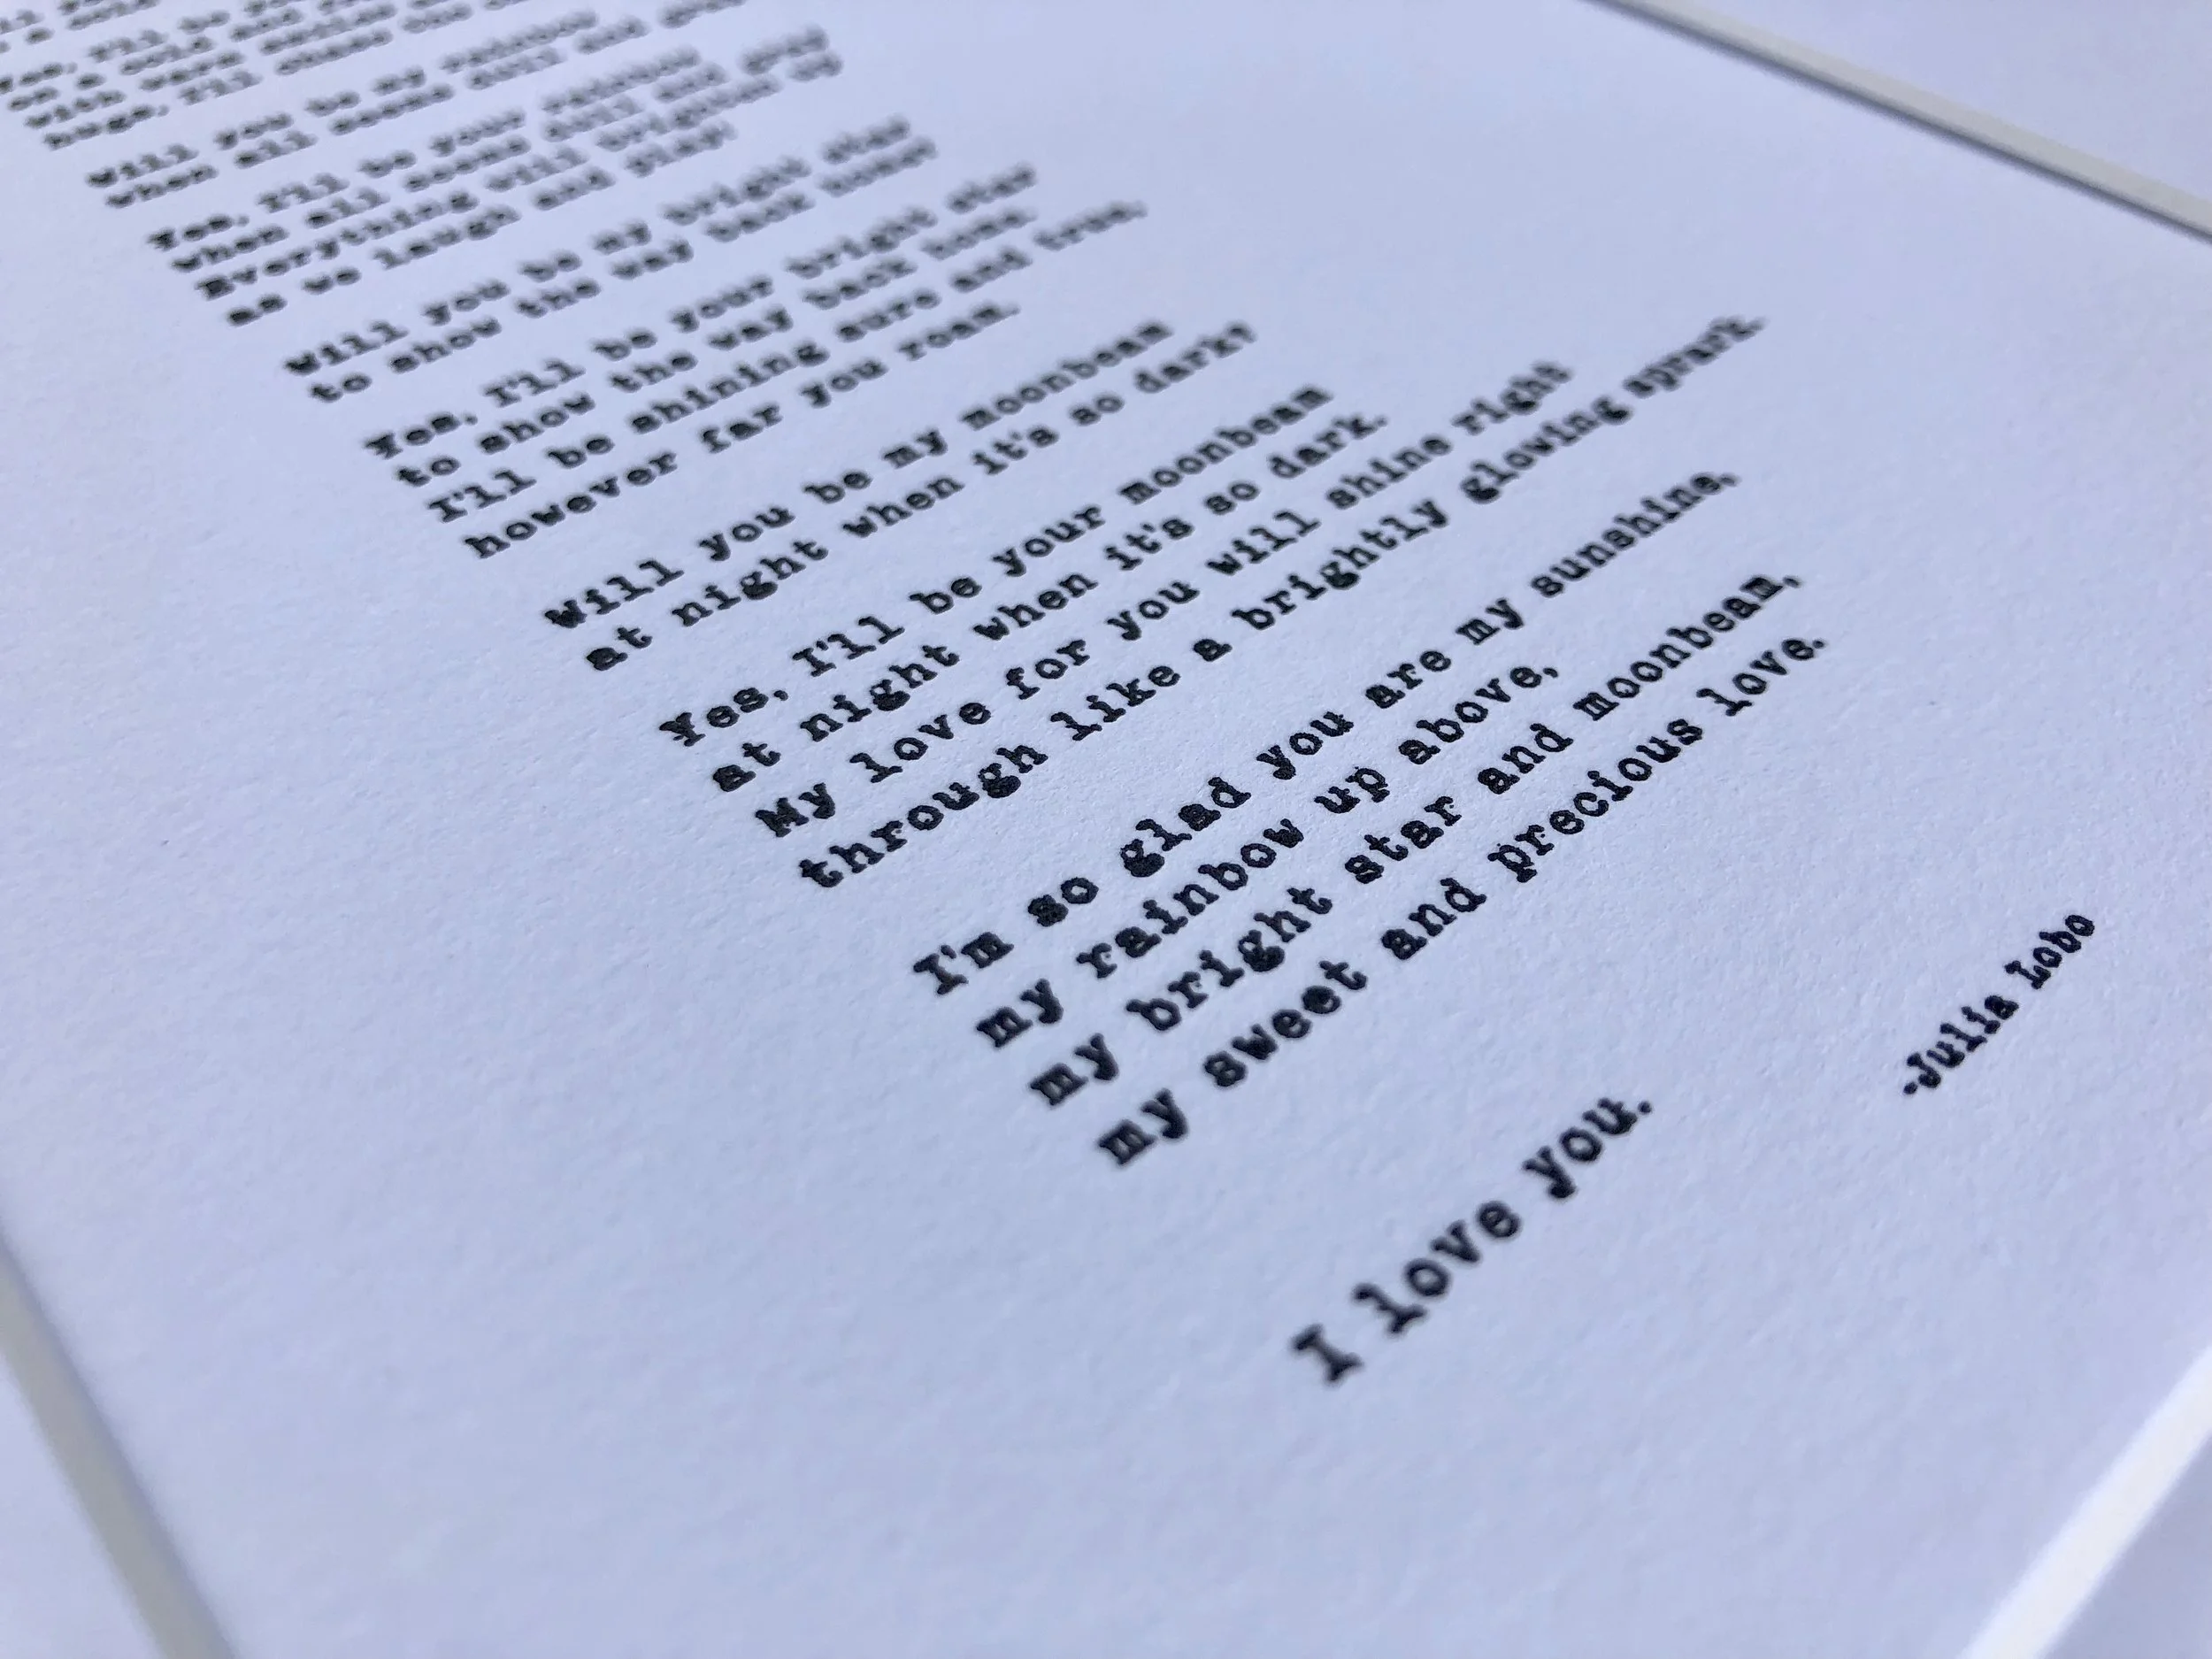 Yes, I'll be
on a cold
with warm
hugs, I'll chase the
Will you be my rainbow
when all seems dull and
Yes, I'll be your rainbow
when all seems dull and gray
Everything will brighten up
as we laugh and play!
Will you be my bright star
to show the way back home?
Yes, I'll be your bright star
to show the way back home.
I'll be shining sure and true,
however far you roam.
Will you be my moonbeam
at night when it's so dark?
Yes, I'll be your moonbeam
at night when it's so dark.
My love for you will shine right
through like a brightly glowing spark.
I'm so glad you are my sunshine,
my rainbow up above,
my bright star and moonbeam,
my sweet and precious love.
I love you.
-Julia Lobo